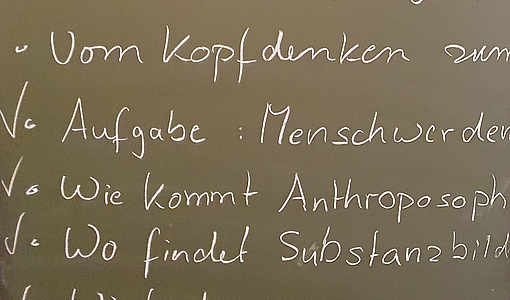 • Vom Kopfdenken zum
√• Aufgabe : Menschwerden
√• Wie kommt Anthroposoph
√• Wo findet Substanzbild